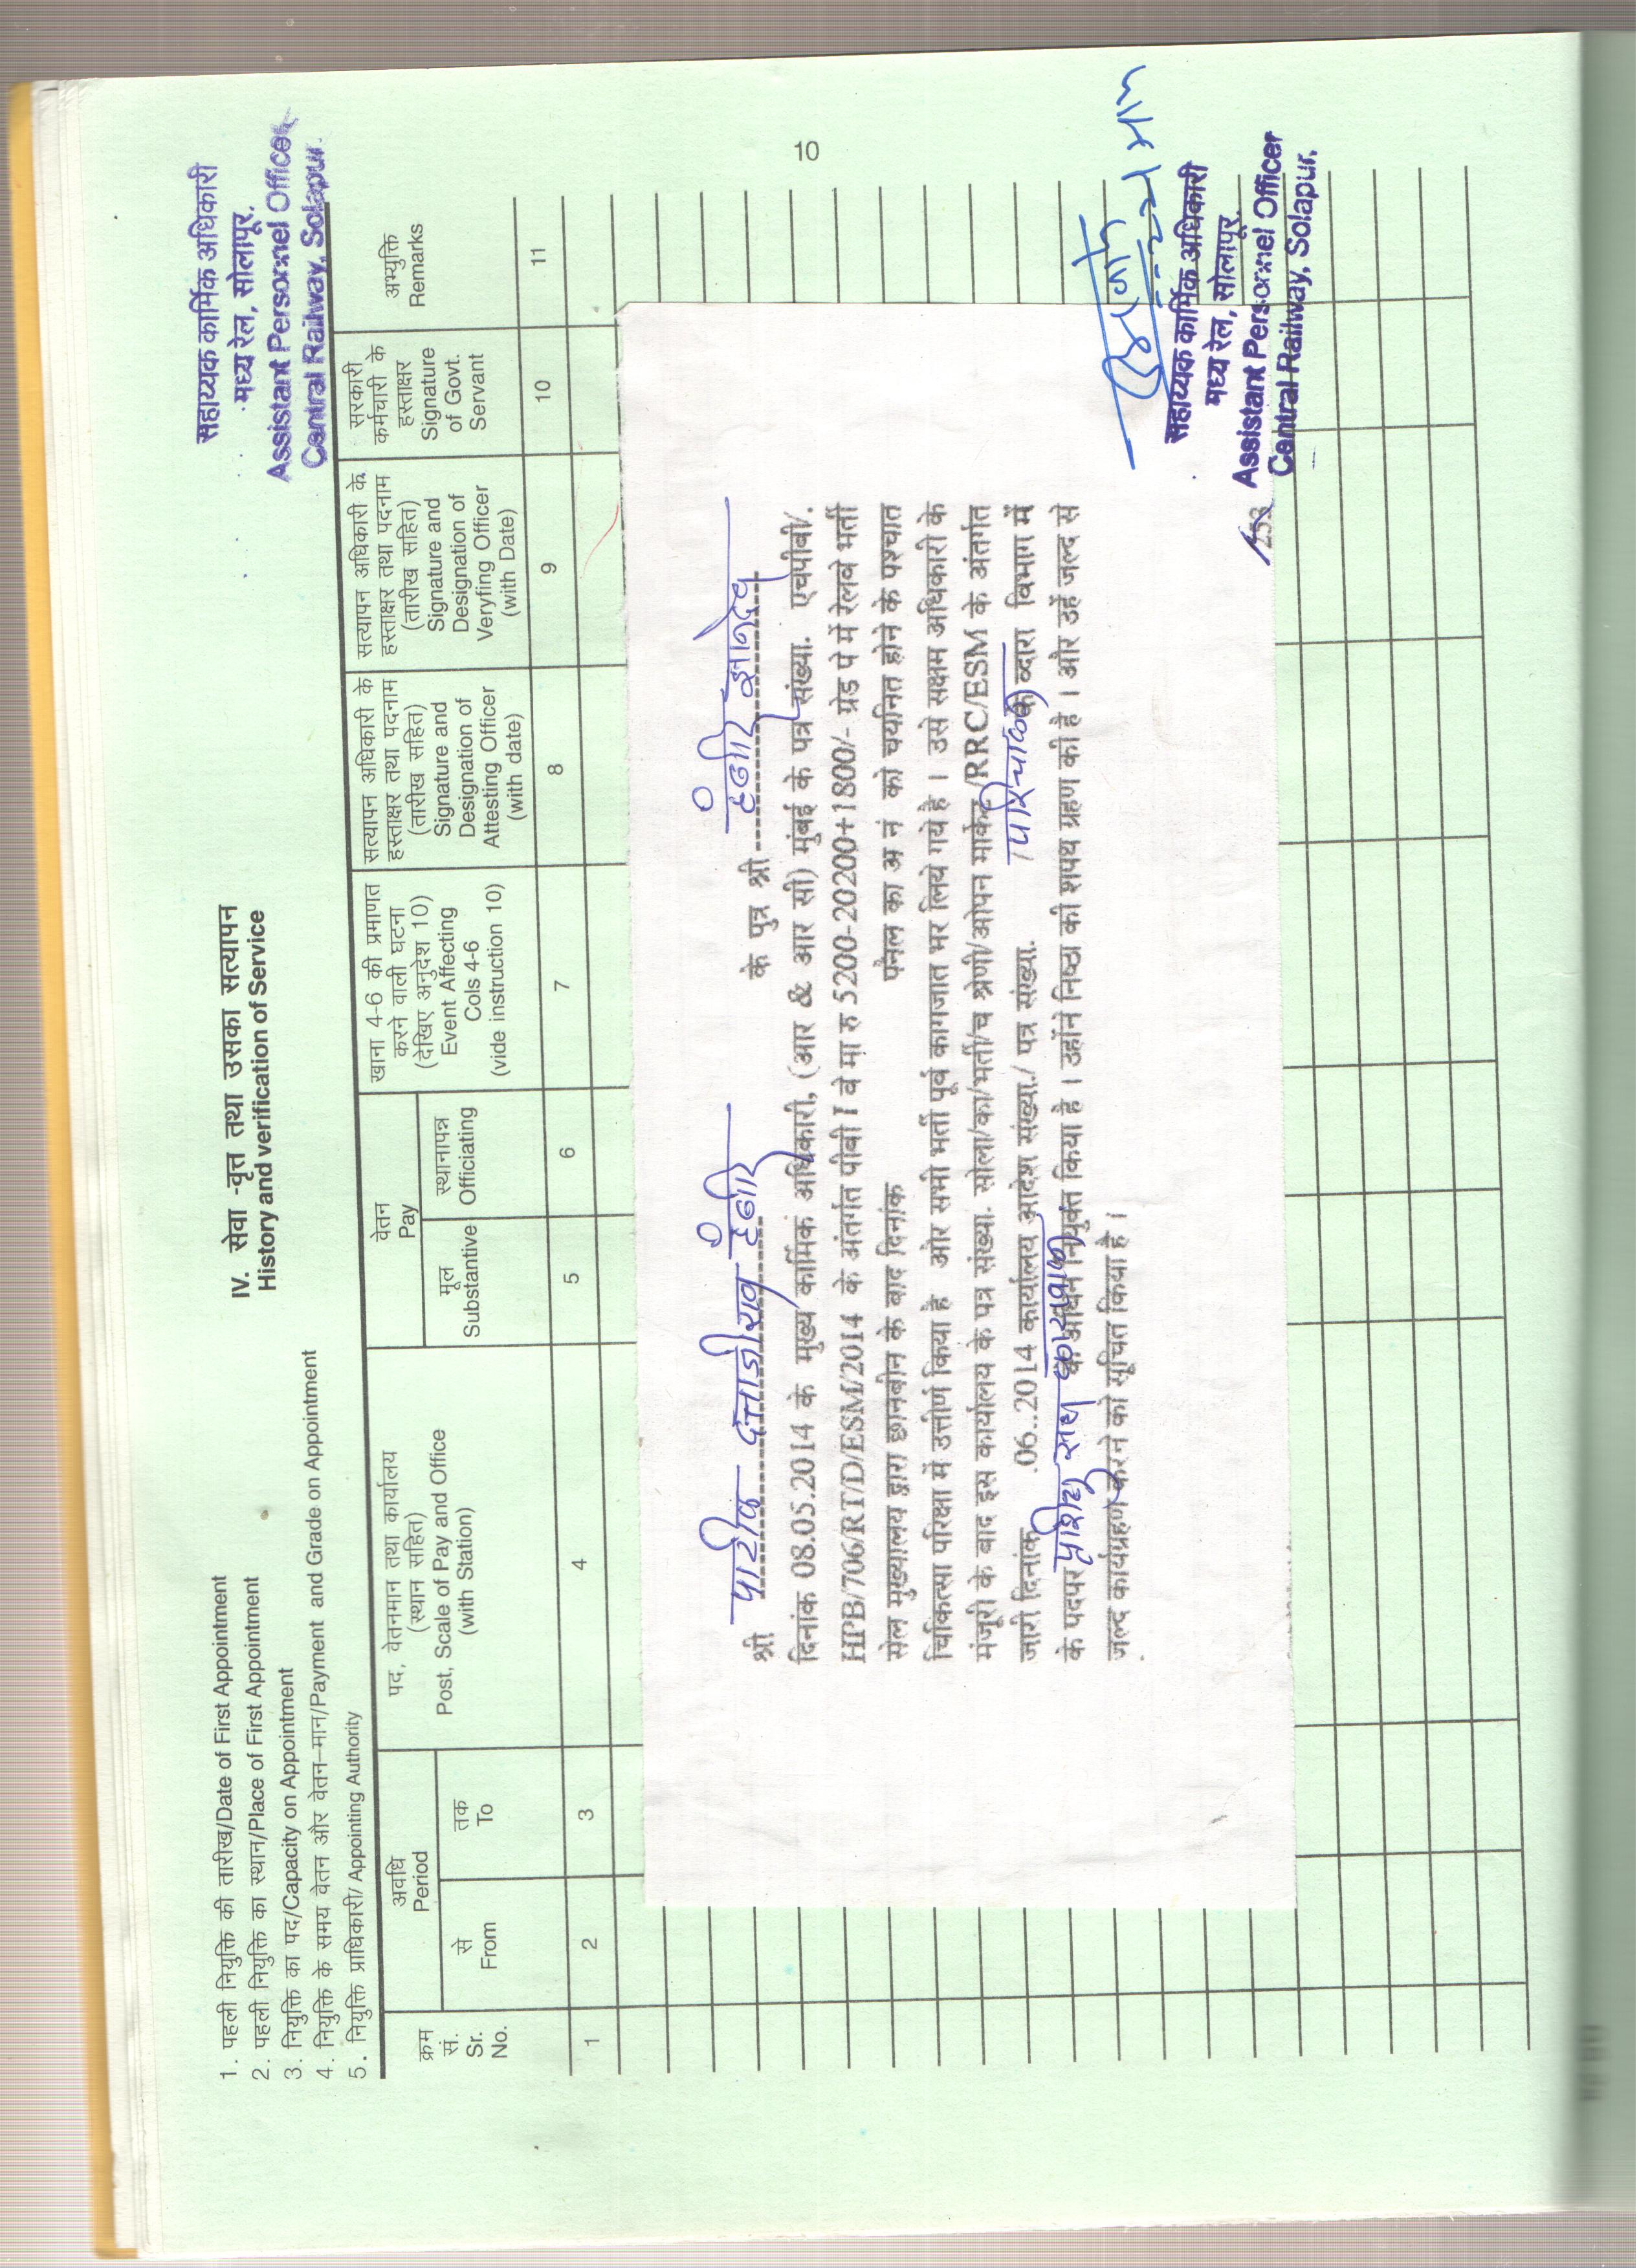 सहाय्यक कार्मिक अधिकारी
मध्य रेल, सोलापूर.
Assistant Personnel Officer
Central Railway, Solapur.
IV. सेवा -वृत्त तथा उसका सत्यापन
History and verification of Service
1. पहली नियुक्ति की तारीख/Date of First Appointment
2. पहली नियुक्ति का स्थान/Place of First Appointment
3. नियुक्ति का पद/Capacity on Appointment
4. नियुक्ति के समय वेतन और वेतन–मान/Payment and Grade on Appointment
5. नियुक्ति प्राधिकारी/ Appointing Authority
क्रम
सं.
Sr.
No.
अवधि
Period
से
From
तक
To
पद, वेतनमान तथा कार्यालय
(स्थान सहित)
Post, Scale of Pay and Office
(with Station)
वेतन
Pay
मूल
Substantive
स्थानापन्न
Officiating
खाना 4-6 की प्रमाणत
करने वाली घटना
(देखिए अनुदेश 10)
Event Affecting
Cols 4-6
(vide instruction 10)
सत्यापन अधिकारी के
हस्ताक्षर तथा पदनाम
(तारीख सहित)
Signature and
Designation of
Attesting Officer
(with date)
सत्यापन अधिकारी के
हस्ताक्षर तथा पदनाम
(तारीख सहित)
Signature and
Designation of
Veryfing Officer
(with Date)
सरकारी
कर्मचारी के
हस्ताक्षर
Signature
of Govt.
Servant
अभ्युक्ति
Remarks
1 2 3 4 5 6 7 8 9 10 11
श्री दत्ताजीराव के पुत्र श्री
दिनांक 08.05.2014 के मुख्य कार्मिक अधिकारी, (आर & आर सी) मुंबई के पत्र संख्या. एचपीबी/.
HPB/706/RT/D/ESM/2014 के अंतर्गत पीबी I वे मा रु 5200-20200+1800/- ग्रेड पे में रेलवे भर्ती
सेल मुख्यालय द्वारा छानबीन के बाद दिनांक पॅनल का अ नं को चयनित होने के पश्चात
चिकित्सा परिक्षा में उत्तीर्ण किया है और सभी भर्ती पूर्व कागजात भर लिये गये है । उसे सक्षम अधिकारी के
मंजूरी के बाद इस कार्यालय के पत्र संख्या. सोला/का/भर्ती/च श्रेणी/ओपन मार्केट/RRC/ESM के अंतर्गत
जारी दिनांक .06..2014 कार्यालय आदेश संख्या./ पत्र संख्या. / के व्दारा विभाग में
के पदपर के अधिन नियुक्त किया है । उहोंने निष्ठा की शपथ ग्रहण की है । और उहें जल्द से
जल्द कार्यग्रहण करने को सूचित किया है ।
सहाय्यक कार्मिक अधिकारी
मध्य रेल, सोलापूर.
Assistant Personnel Officer
Central Railway, Solapur.
10